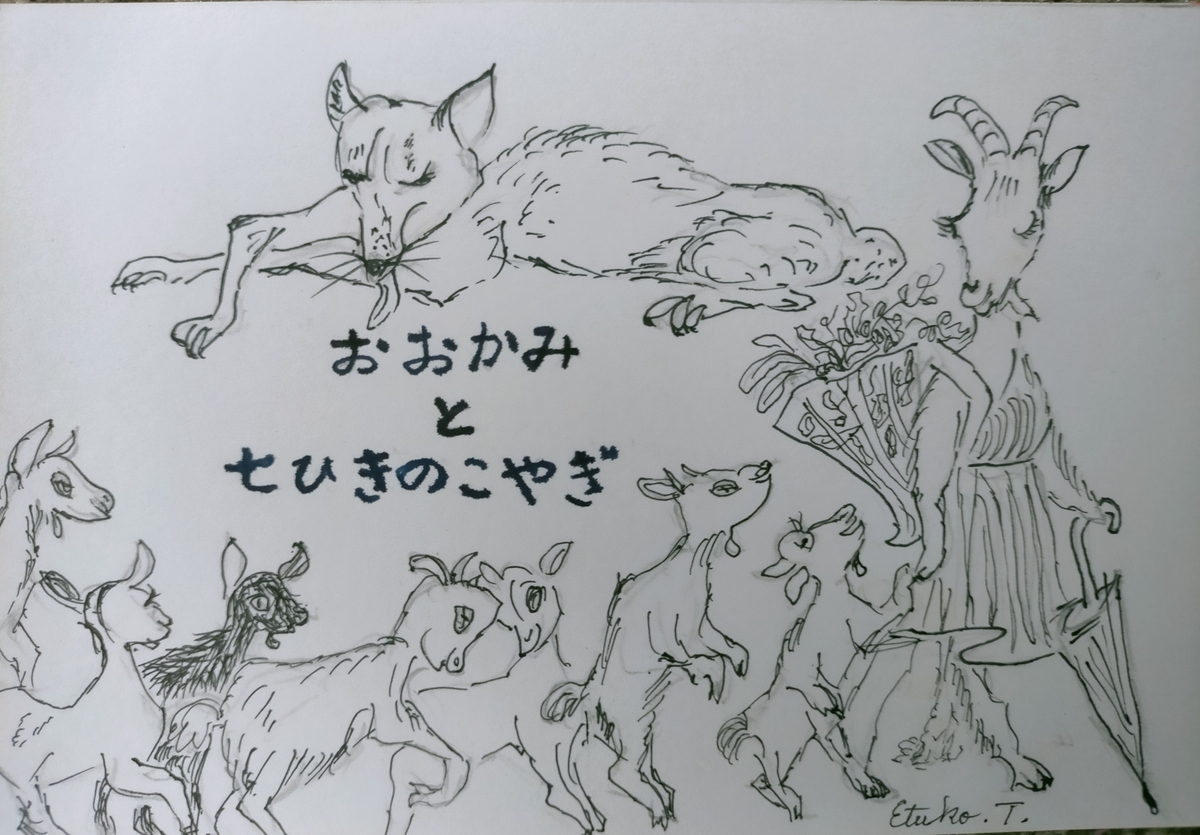 おおかみ
と
七ひきのこやぎ
Etuko.T.